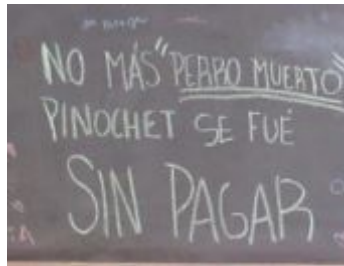 NO MÁS "PERRO MUERTO"
PINOCHET SE FUÉ
SIN PAGAR